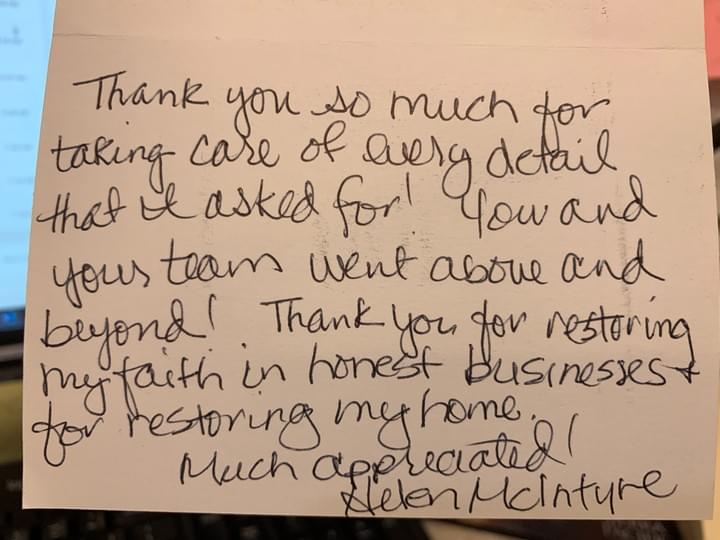 Thank you so much for
taking care of every detail
that I asked for! You and
your team went above and
beyond! Thank you for restoring
my faith in honest businesses +
for restoring my home.
Much appreciated!
Helen McIntyre